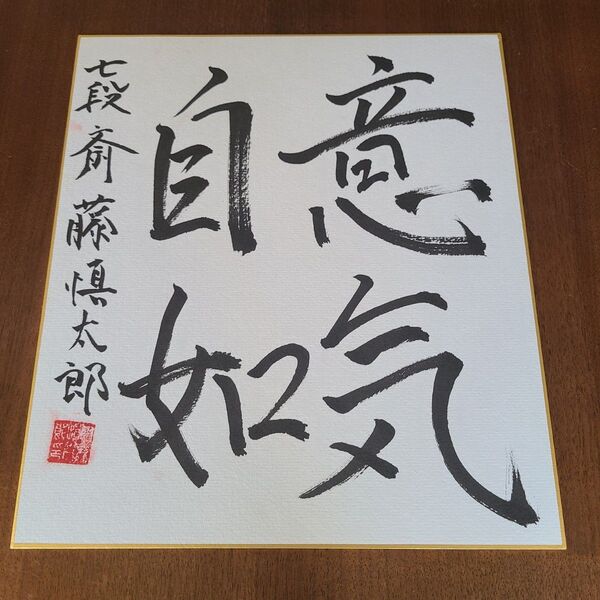 意気
自如
七段 斎藤慎太郎